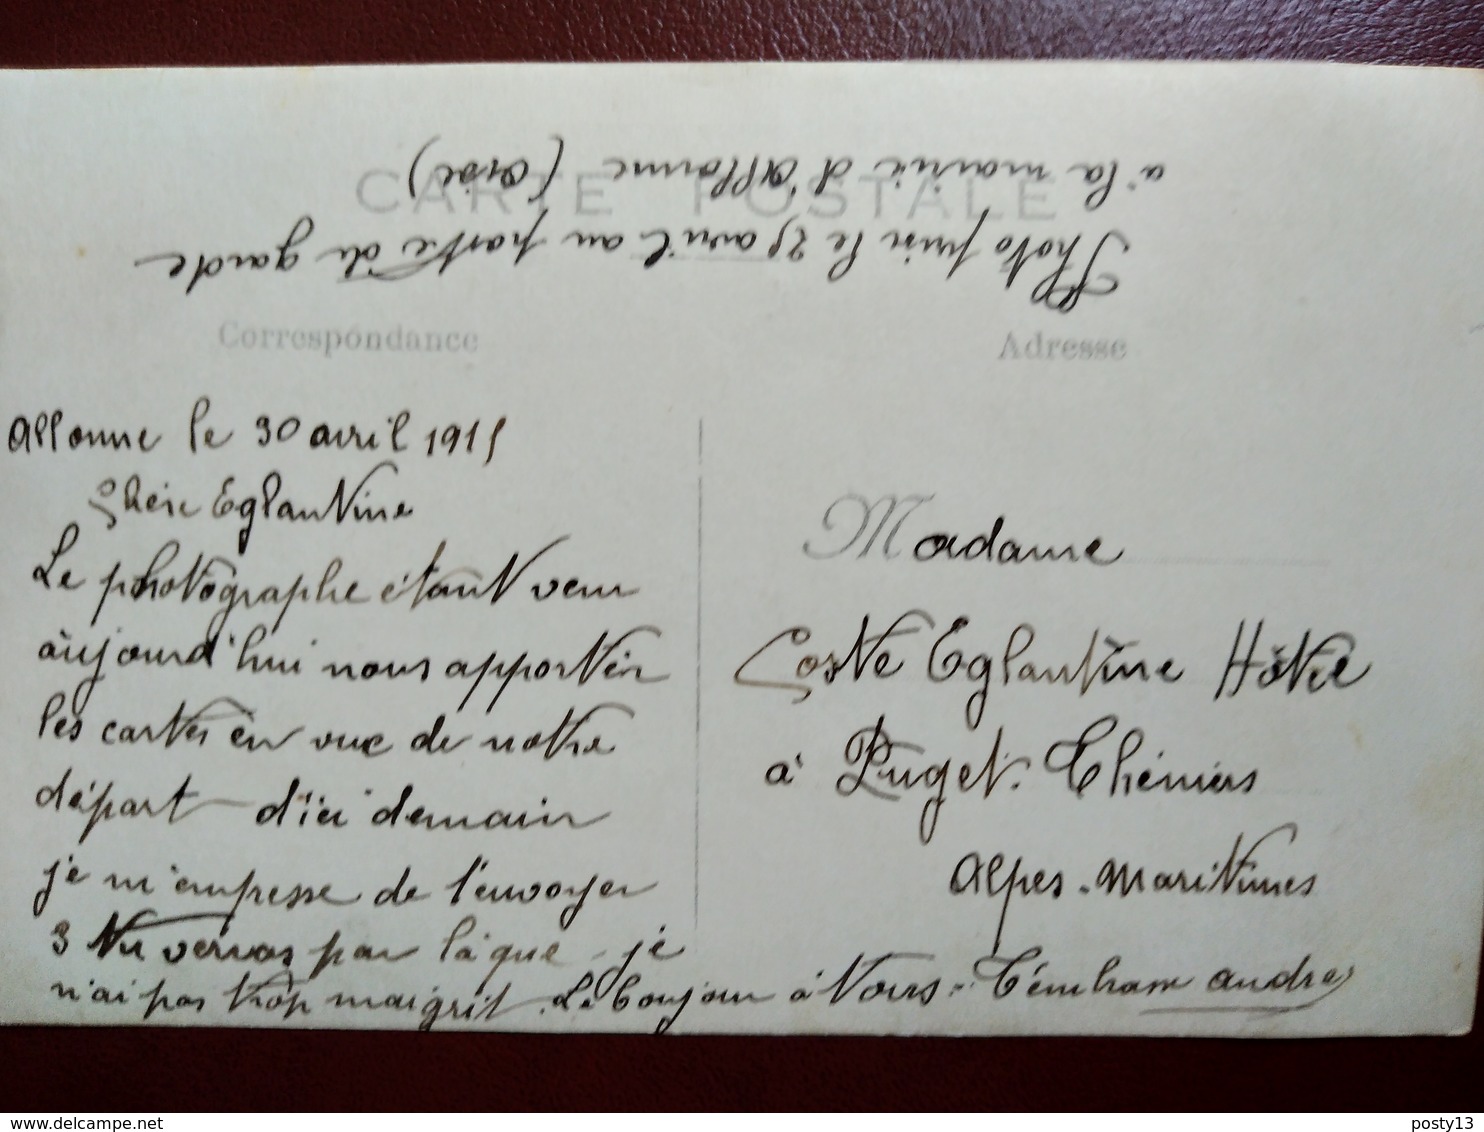 CARTE POSTALE
Photo prise le 25 avril au poste de garde
à la mairie d'Allonne (Oise)
Correspondance
Adresse
Allonne le 30 avril 1915
Chère Eglantine
Le photographe étant venu
aujourd'hui nous apporter
les cartes en vue de notre
départ d'ici demain
je m'empresse de t'envoyer
3 tu verras par là que je
n'ai pas trop maigrit. Le bonjour à tous. André
Madame
Coste Eglantine Hôtel
à Puget-Théniers
Alpes-Maritimes
delcampe.net
posty13